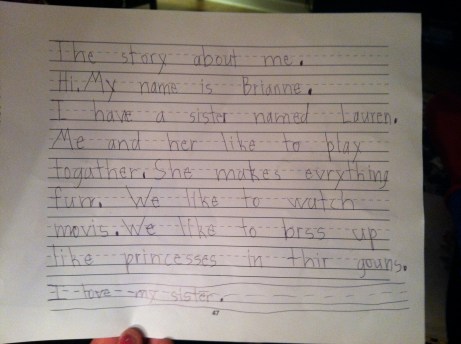 The story about me.
Hi. My name is Brianne.
I have a sister named Lauren.
Me and her like to play
togather. She makes evrything
furr. We like to watch
movis. We like to brss up
like princesses in thir gouns.
I love my sister.
67